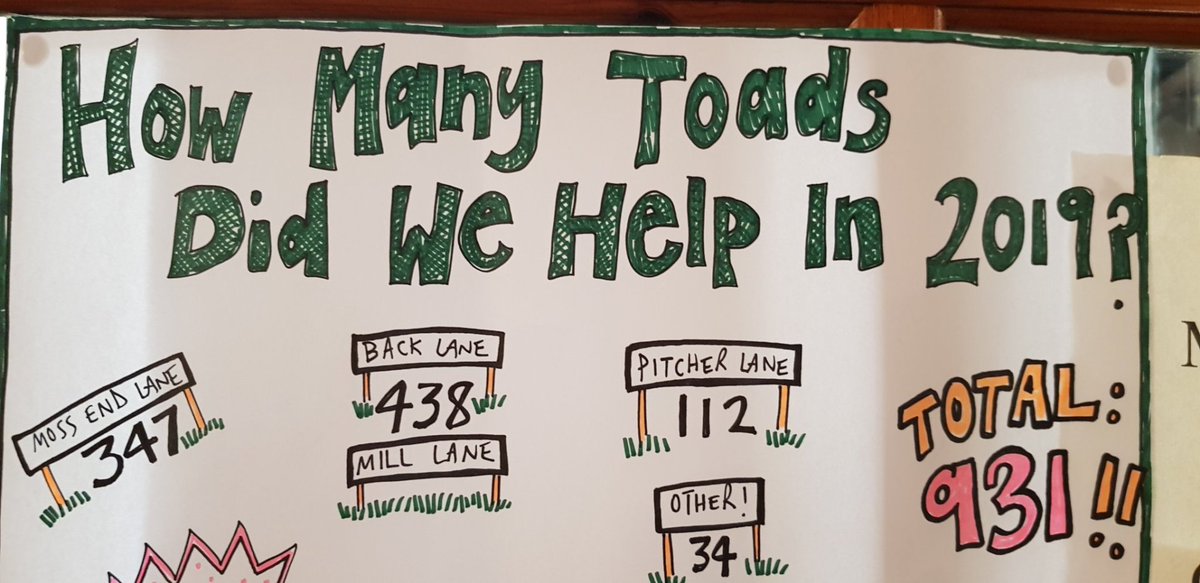 How Many Toads
Did We Help In 2019?
MOSS END LANE
347
BACK LANE
438
MILL LANE
PITCHER LANE
112
OTHER!
34
TOTAL:
931!!